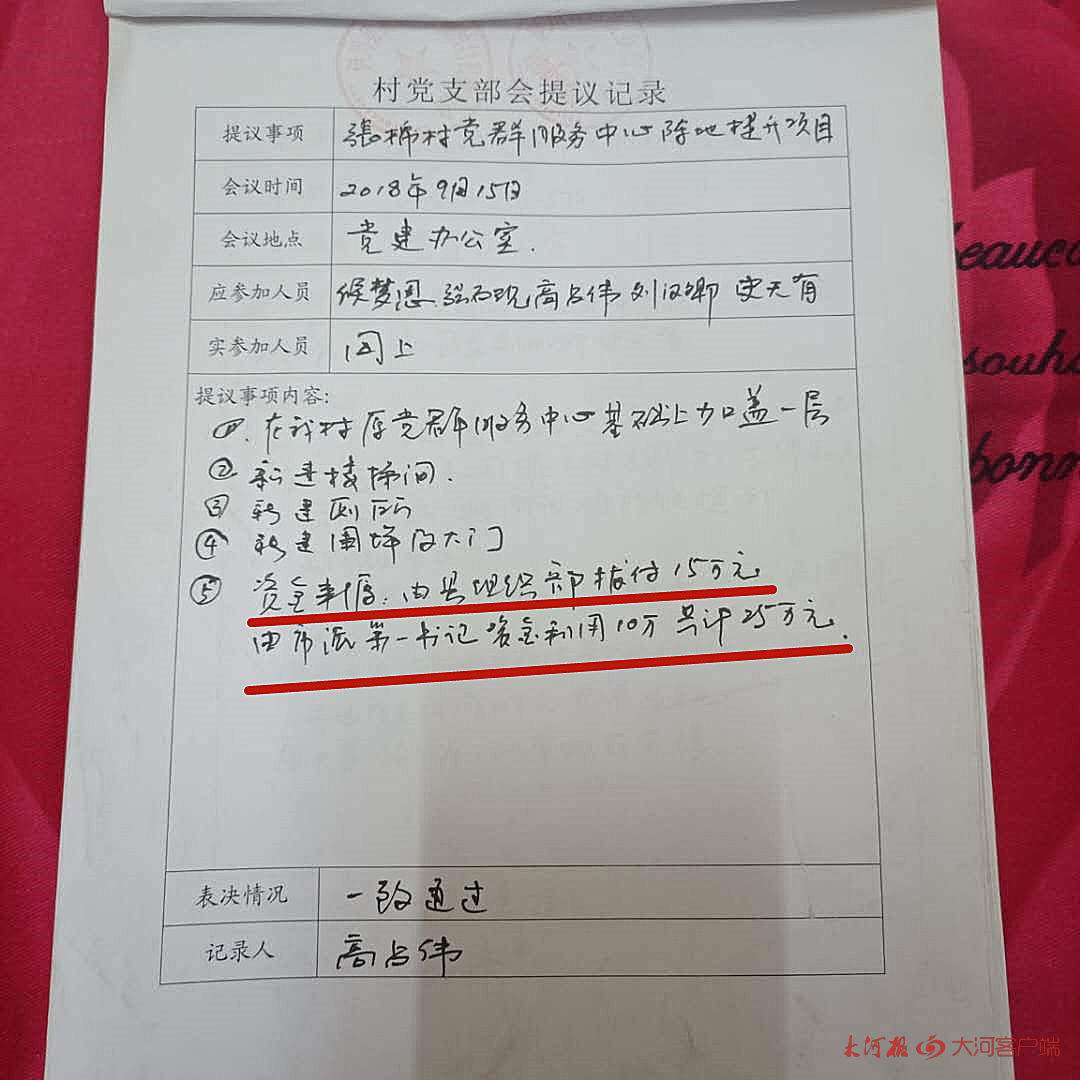 村党支部会提议记录
提议事项 张柿村党群服务中心阵地提升项目
会议时间 2018年9月15日
会议地点 党建办公室.
应参加人员 侯梦恩 高占伟 史天有
实参加人员 同上
提议事项内容:
①.在我村原党群服务中心基础上加盖一层
② 新建楼梯间.
③ 新建厕所
④ 新建围墙及大门
⑤ 资金来源:由县组织部拨付15万元
由市派第一书记资金利用10万 共计25万元.
表决情况 一致通过
记录人 高占伟
beauco
souha
bonn
大河报 大河客户端